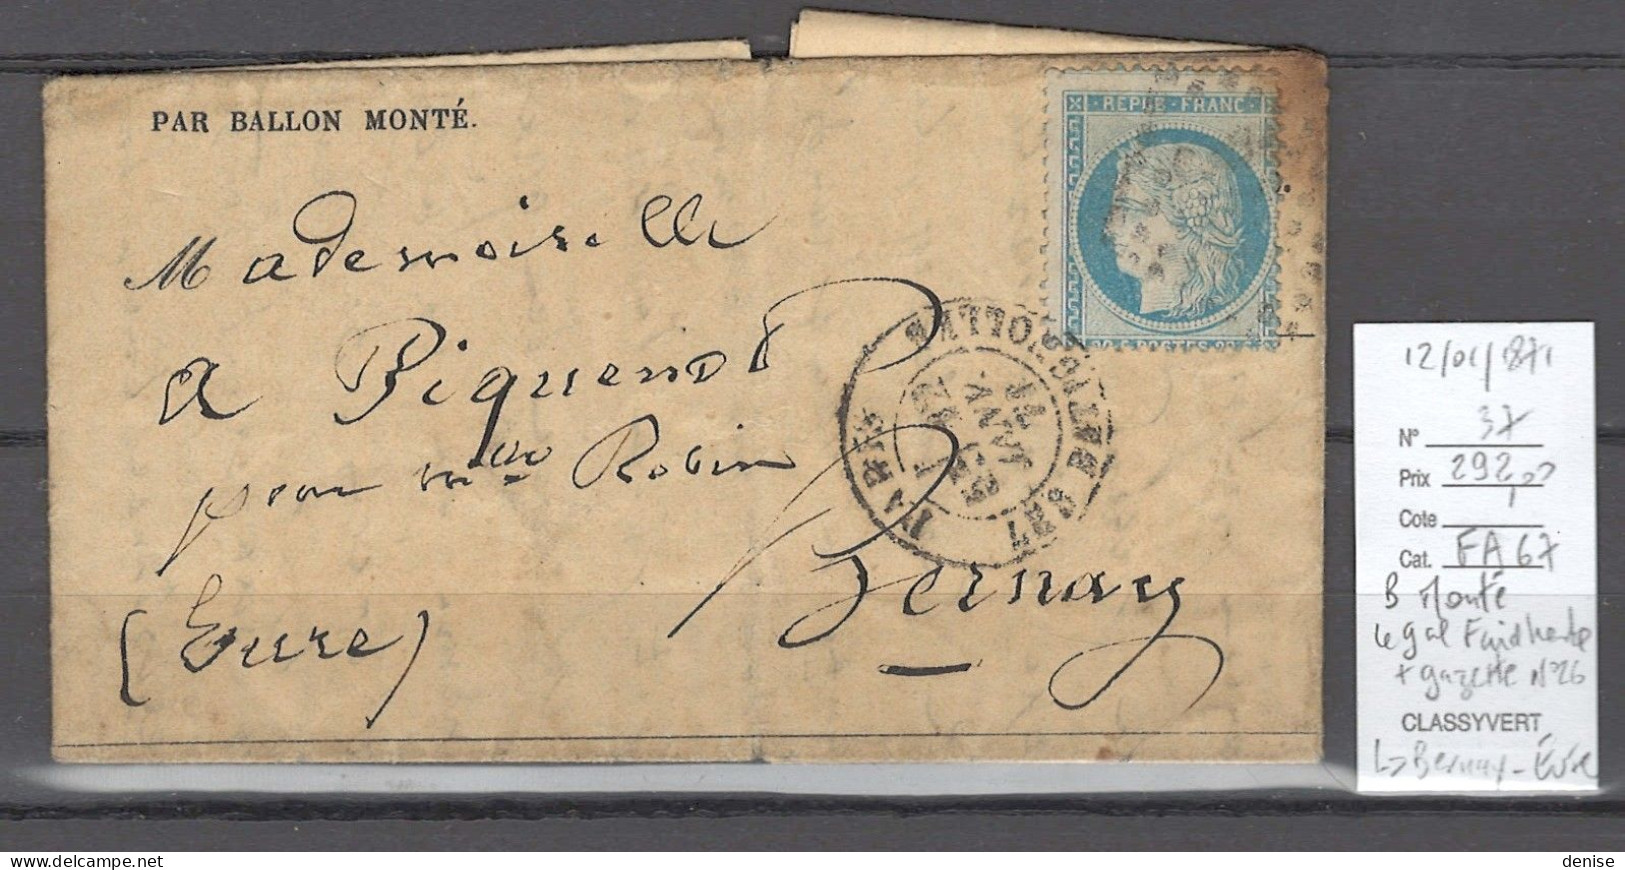 PAR BALLON MONTÉ.
REPUB · FRANC
Mademoiselle
a Biquenot
pour mme Robin
Bernay
(Eure)
PARIS
BATIGNOLLES
JANV.
71
12/01/1871
N° 37
Prix 292,00
Cote
Cat. FA 67
B Monté
le gal Faidherbe
+ gazette N°26
CLASSYVERT
L> Bernay - Eure
denise